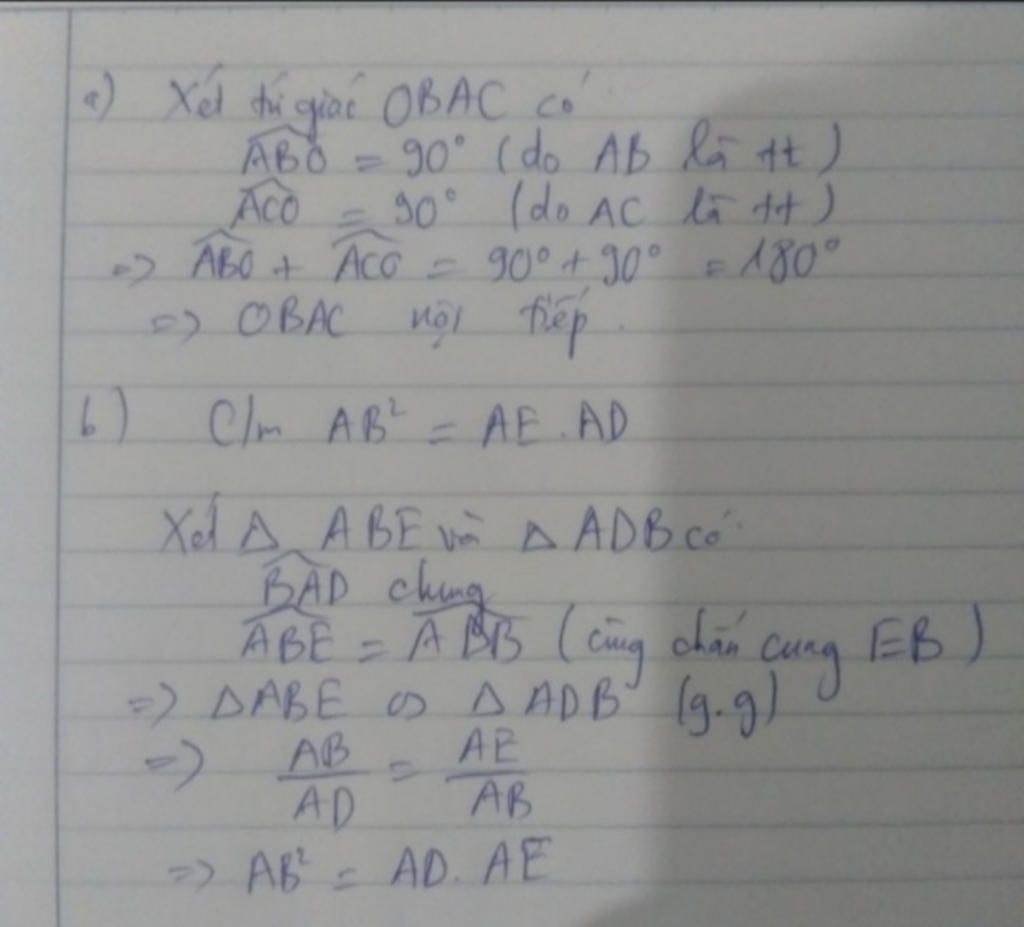 a) Xét tứ giác OBAC có
$\widehat{ABO}$ = 90° (do AB là tt)
$\widehat{ACO}$ = 90° (do AC là tt)
=> $\widehat{ABO}$ + $\widehat{ACO}$ = 90° + 90° = 180°
=> OBAC nội tiếp.
b) C/m AB² = AE . AD
Xét Δ ABE và Δ ADB có
$\widehat{BAD}$ chung
$\widehat{ABE}$ = $\widehat{ADB}$ (cùng chắn cung EB)
=> ΔABE ∽ Δ ADB (g.g)
=> $\frac{AB}{AD}$ = $\frac{AE}{AB}$
=> AB² = AD. AE